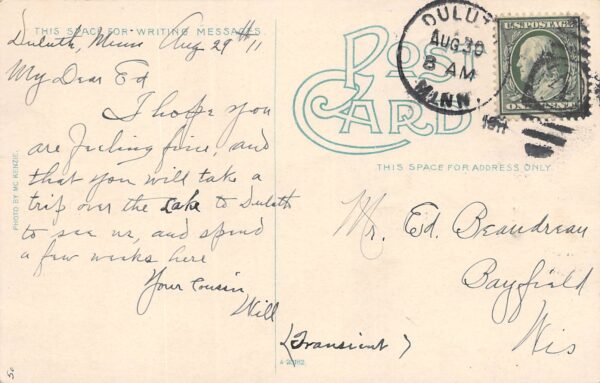 THIS SPACE FOR WRITING MESSAGES.
Duluth, Minn Aug 29th 11
My Dear Ed
I hope you
are feeling fine, and
that you will take a
trip over the Lake to Duluth
to see us, and spend
a few weeks here
Your Cousin
Will
PHOTO BY MC KENZIE.
50
POST CARD
DULUTH
AUG 30
8 AM
MINN.
1911
U.S. POSTAGE
ONE CENT
THIS SPACE FOR ADDRESS ONLY.
Mr. Ed. Beaudreau
Bayfield
Wis
(Transient)